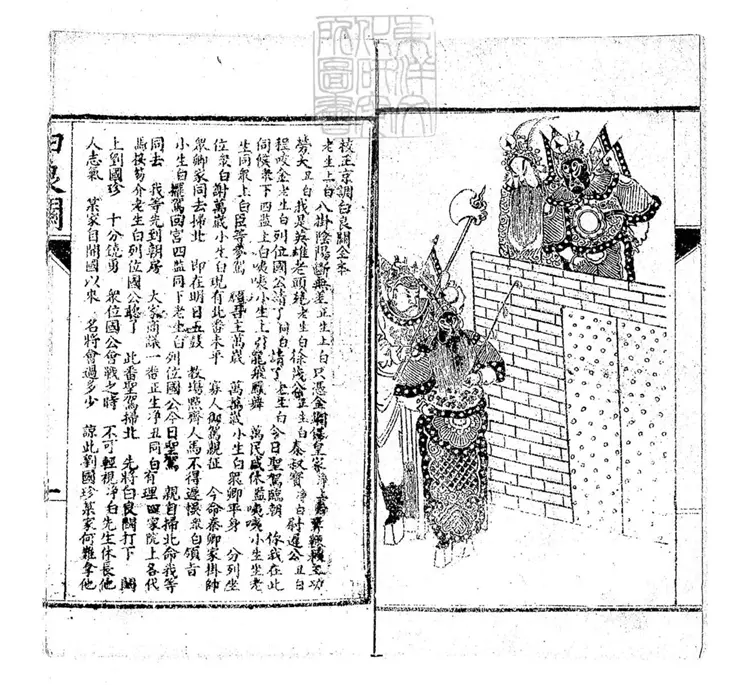 東洋文化研究所圖書
校正京調白良關全本
老生上白 八掛陰陽斷無差正生上白 只憑金鐧保皇家淨上白 單鞭立功
勞丑白我是英雄老頭老生白徐茂公正生白秦叔寶淨白尉遲公丑白
程咬金老生白列位國公請了同白請了老生白今日聖駕臨朝 你我在此
伺候眾下四監上白咦咦小生上引龍飛鳳舞 萬民咸休監咦咦小生坐老
生同眾上白臣等參駕 願吾主萬歲 萬萬歲小生白眾卿平身 分列坐
位眾白謝萬歲小生白現有北番未平 寡人御駕親征 今命秦卿家掛帥
眾卿家同去掃北 即在明日五鼓 教場點齊人馬不得遲悞眾白領旨
小生白擺駕回宮四監同下老生白列位國公今日聖駕 親自掃北命我等
同去 我等先到朝房 大家商議一番正生淨丑同白有理四家院上各代
馬接笏介老生白列位國公聽了 此番聖駕掃北 先將白良關打下 關
上劉國珍 十分饒勇 眾位國公會戰之時 不可輕視淨白先生休長他
人志氣 某家自開國以來 名將會過多少 諒此劉國珍某家何難拿他
白良關
一